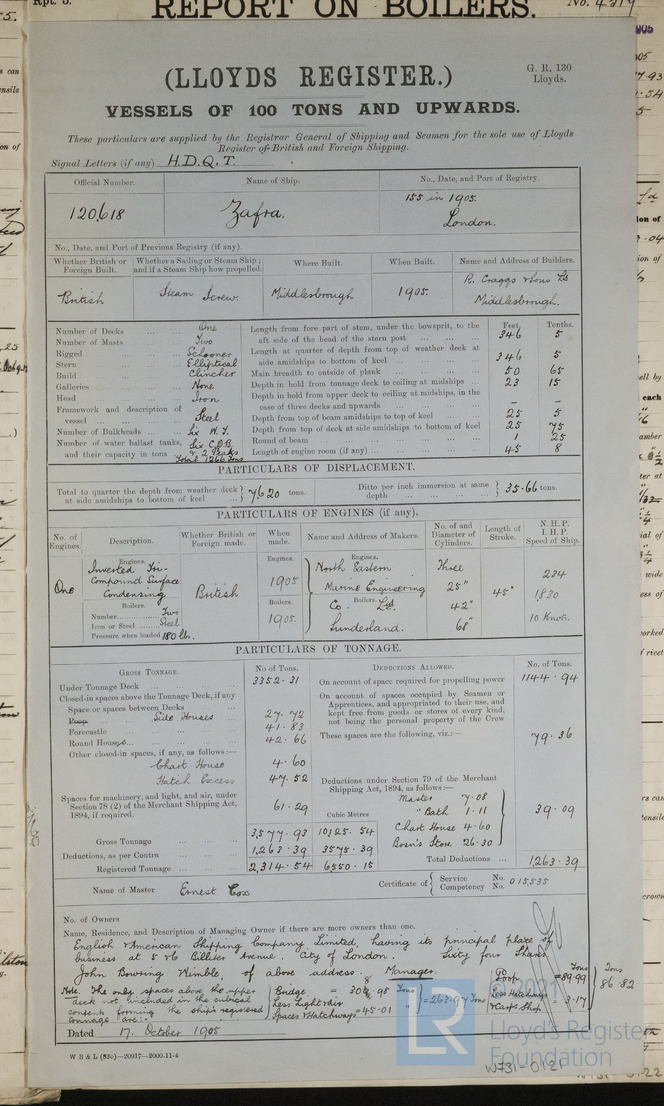 Rpt. 5.
REPORT ON BOILERS.
No. 4219
(LLOYDS REGISTER.)
G. R. 130
Lloyds.
VESSELS OF 100 TONS AND UPWARDS.
These particulars are supplied by the Registrar General of Shipping and Seamen for the sole use of Lloyds
Register of British and Foreign Shipping.
Signal Letters (if any) H.D.Q.T.
Official Number. Name of Ship. No., Date, and Port of Registry.
120,618 Zafra. 155 in 1905. London.
No., Date, and Port of Previous Registry (if any).
Whether British or Foreign Built. Whether a Sailing or Steam Ship; and if a Steam Ship how propelled. Where Built. When Built. Name and Address of Builders.
British Steam Screw. Middlesbrough 1905. R. Craggs & Sons Ld Middlesbrough.
Feet Tenths.
Number of Decks One
Number of Masts Two
Rigged Schooner
Stern Elliptical
Build Clincher
Galleries None
Head Iron
Framework and description of vessel Steel
Number of Bulkheads Six W.T.
Number of water ballast tanks, and their capacity in tons Six C.D.B. & 2 Peaks Total 1266 Tons
Length from fore part of stem, under the bowsprit, to the aft side of the head of the stern post 346 5
Length at quarter of depth from top of weather deck at side amidships to bottom of keel 346 5
Main breadth to outside of plank 50 65
Depth in hold from tonnage deck to ceiling at midships 23 15
Depth in hold from upper deck to ceiling at midships, in the case of three decks and upwards - -
Depth from top of beam amidships to top of keel 25 5
Depth from top of deck at side amidships to bottom of keel 25 75
Round of beam 1 25
Length of engine room (if any) 45 8
PARTICULARS OF DISPLACEMENT.
Total to quarter the depth from weather deck at side amidships to bottom of keel 7620 tons. Ditto per inch immersion at same depth 35.66 tons.
PARTICULARS OF ENGINES (if any).
No. of Engines. Description. Whether British or Foreign made. When made. Name and Address of Makers. No. of and Diameter of Cylinders. Length of Stroke. N. H. P. I. H. P. Speed of Ship.
One
Engines. Inverted Tri-Compound Surface Condensing
Boilers.
Number Two
Iron or Steel Steel
Pressure when loaded 180 lb.
British
Engines. 1905
Boilers. 1905.
Engines. North Eastern Marine Engineering Co Boilers. Ltd. Sunderland.
Three 25" 42" 68"
45"
234
1830
10 Knots.
PARTICULARS OF TONNAGE.
GROSS TONNAGE. No of Tons. DEDUCTIONS ALLOWED. No. of Tons.
Under Tonnage Deck 3352.31
Closed-in spaces above the Tonnage Deck, if any
Space or spaces between Decks
Poop Side Houses 27.72
Forecastle 41.83
Round Houses 42.66
Other closed-in spaces, if any, as follows:—
Chart House 4.60
Hatch Excess 47.52
Spaces for machinery, and light, and air, under Section 78 (2) of the Merchant Shipping Act, 1894, if required. 61.29
Cubic Metres
Gross Tonnage 3,577.93 10,125.54
Deductions, as per Contra 1,263.39 3575.39
Registered Tonnage 2,314.54 6550.15
On account of space required for propelling power 1144.94
On account of spaces occupied by Seamen or Apprentices, and appropriated to their use, and kept free from goods or stores of every kind, not being the personal property of the Crew
These spaces are the following, viz.:— 79.36
Deductions under Section 79 of the Merchant Shipping Act, 1894, as follows:—
Master 7.08
" Bath 1.11
Chart House 4.60
Bosn's Store 26.30
39.09
Total Deductions 1,263.39
Name of Master Ernest Cox
Certificate of Service No. Competency No. 015535
No. of Owners
Name, Residence, and Description of Managing Owner if there are more owners than one.
English & American Shipping Company Limited, having its principal place of
business at 5 & 6 Billiter Avenue, City of London. Sixty four Shares
John Bowring Wimble, of above address. Manager.
Note. The only spaces above the upper deck not included in the cubical contents forming the ship's registered tonnage are:
Bridge = 308.98 Tons
Less Light & air Spaces & Hatchways = 45.01 "
= 263.97 Tons
Poop = 89.99 Tons
Less Hatchways 3.17
Tons 86.82
Dated 17. October 1905
W B & L (83c)—20917—2000-11-4
LR
© 2021
Lloyd's Register
Foundation
W731-0121